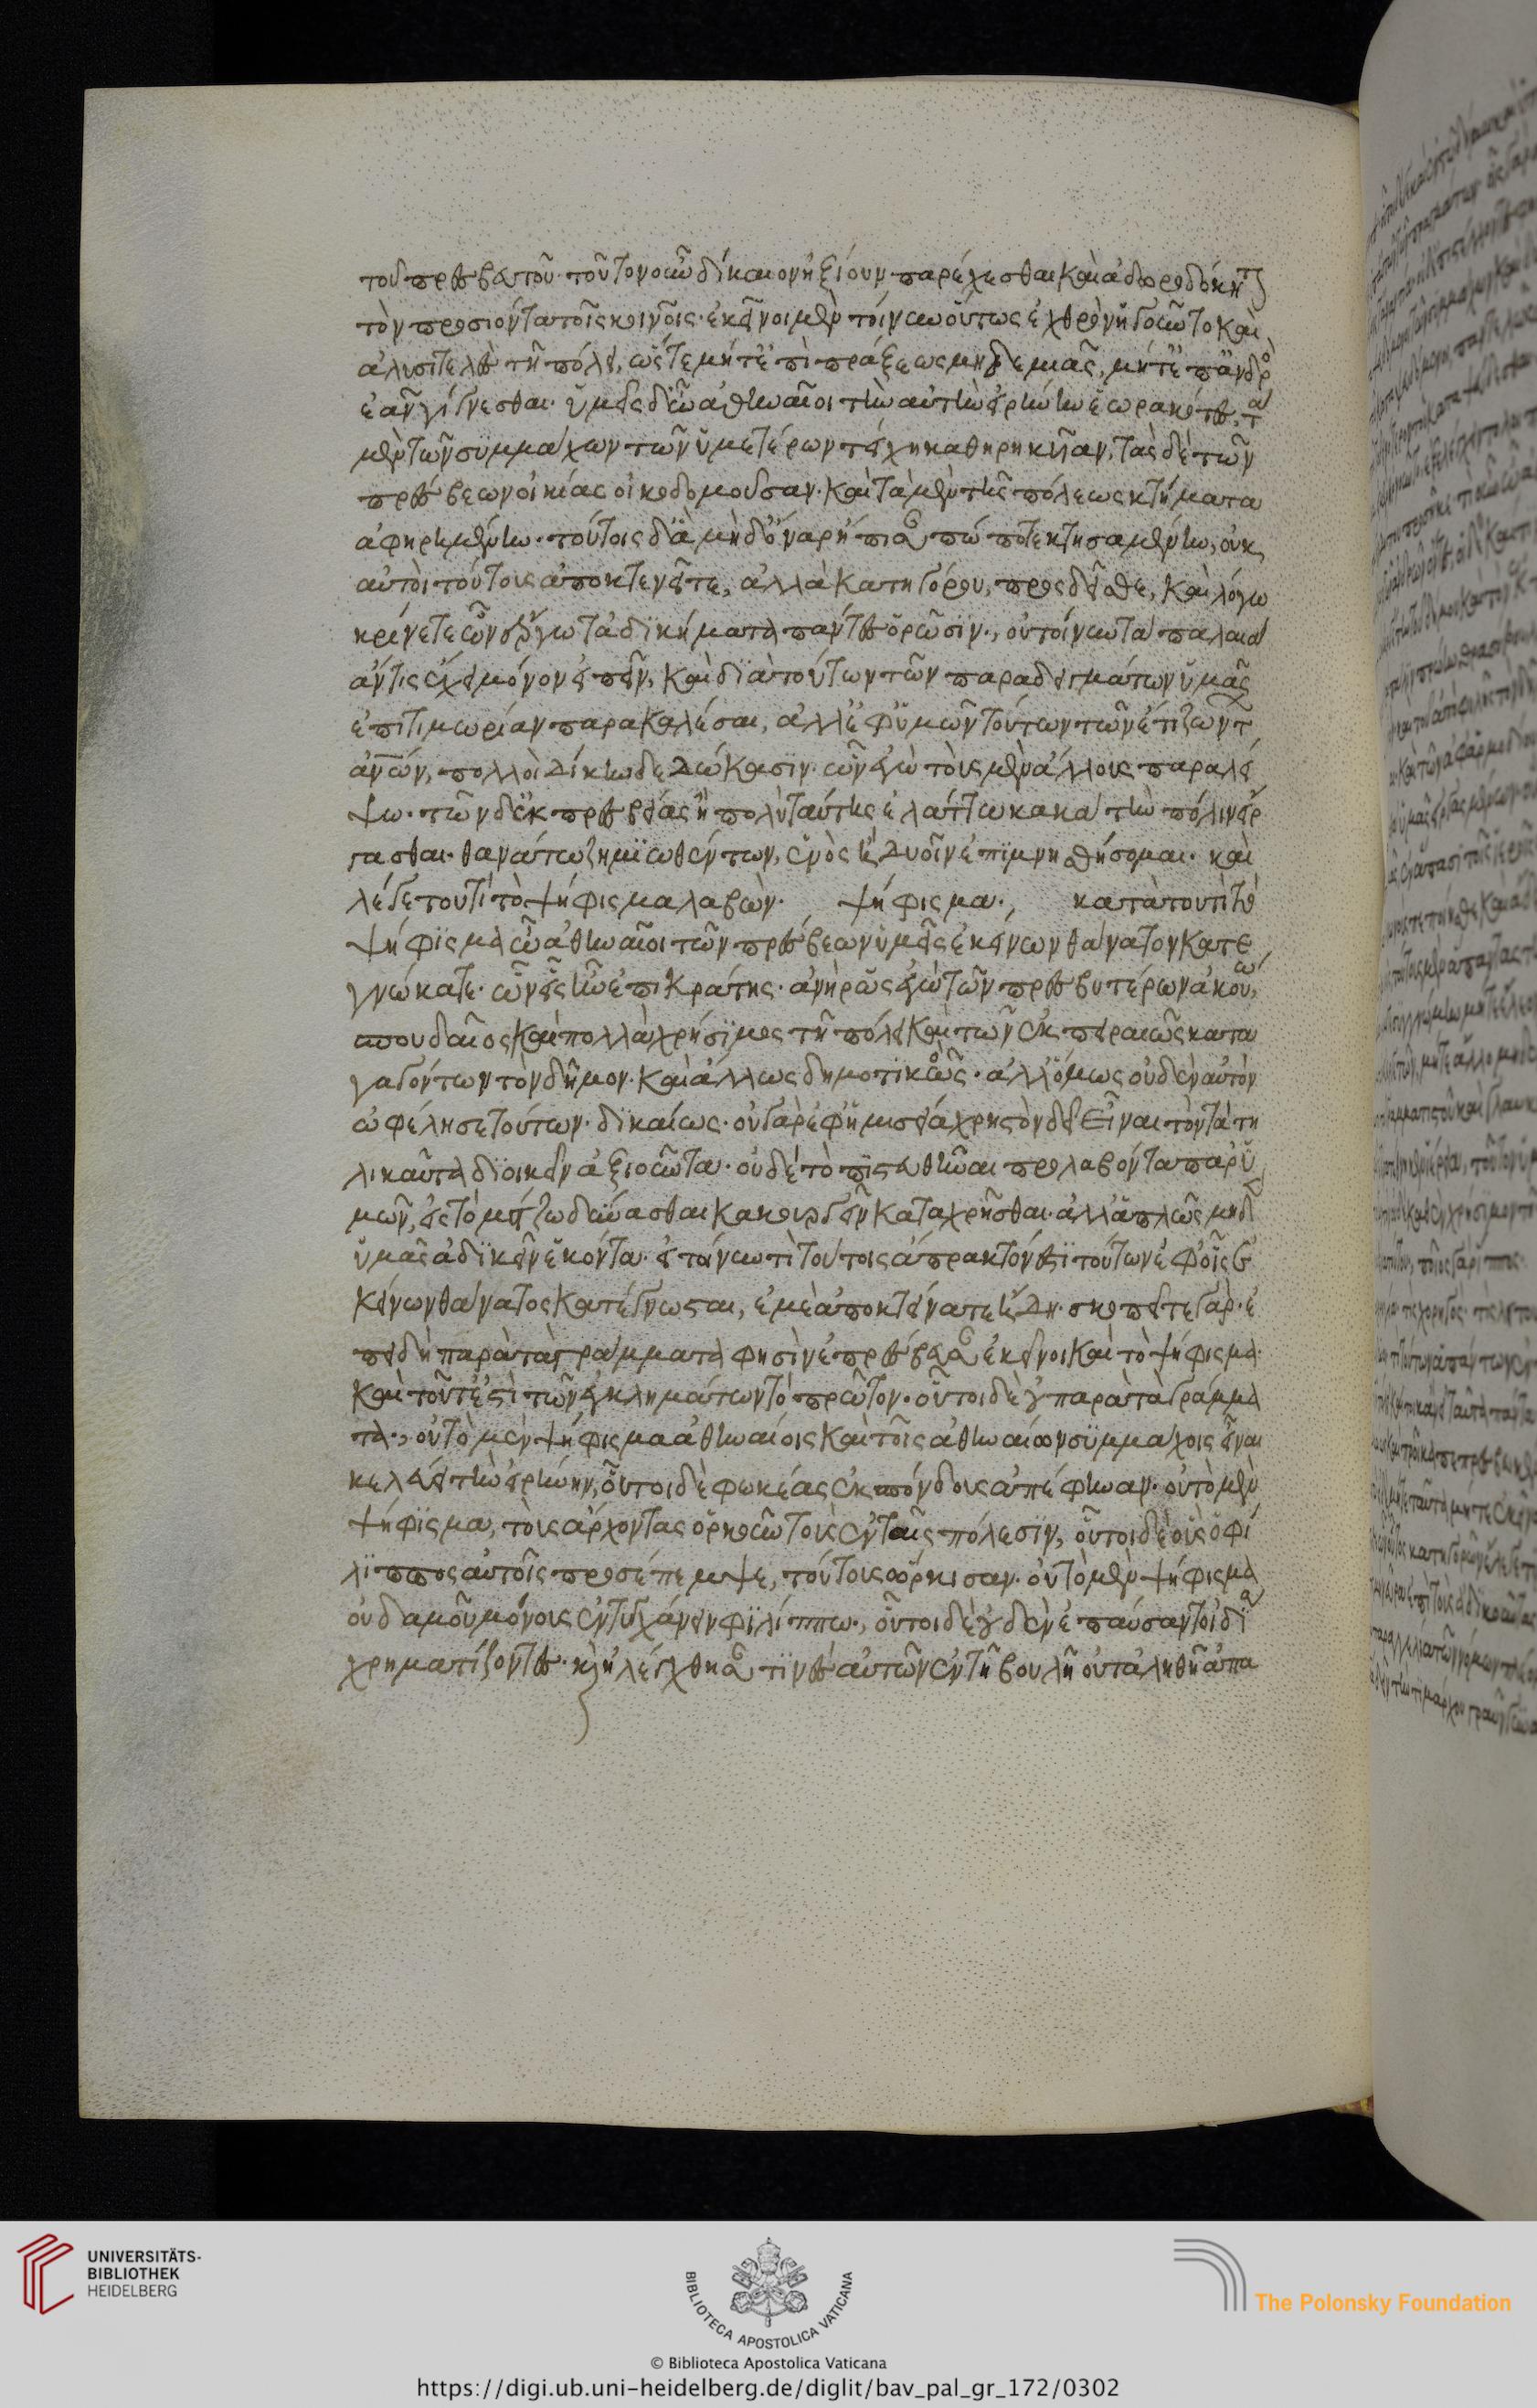 τοῦ πρεσβευτοῦ· τοῦτον οὖν δίκαιον ἠξίουν παρέχεσθαι καὶ ἀδωροδόκητ
τὸν προσιόντα τοῖς κοινοῖς· ἐκεῖνοι μὲν τοίνυν οὕτως ἐχθρὸν ἡγοῦντο καὶ
ἀλυσιτελὲς τῇ πόλει, ὥστε μήτ' ἐπὶ πράξεως μηδεμιᾶς, μήτ' ἐπ' ἀνδρὸ
ἐᾶν γίγνεσθαι· ὑμεῖς δ' ὦ ἀθηναῖοι τὴν αὐτὴν εἰρήνην ἑωρακότες, τὰ
μὲν τῶν συμμάχων τῶν ὑμετέρων τείχη καθῃρηκυῖαν, τὰς δὲ τῶν
πρέσβεων οἰκίας οἰκοδομοῦσαν· καὶ τὰ μὲν τῆς πόλεως κτήματα
ἀφῃρημένην· τούτοις δ' ἃ μηδ' ὄναρ ἤλπισαν πώποτε κτησαμένην, οὐκ
αὐτοὶ τούτους ἀποκτενεῖτε, ἀλλὰ κατηγόρου, προσδεῖσθε, καὶ λόγω
κρίνετε ὧν ἔργω τἀδικήματα πάντες ὁρῶσιν·, οὐ τοίνυν τὰ παλαιὰ
ἄν τις ἔχει μόνον εἰπεῖν, καὶ διὰ τούτων τῶν παραδειγμάτων ὑμᾶς
ἐπι τιμωρίαν παρακαλέσαι, ἀλλ' ἐφ' ὑμῶν τούτων τῶν ἔτι ζώντ
ἀνων, πολλοὶ δίκην δεδώκασιν· ὧν ἐγὼ τοὺς μὲν ἄλλους παραλεί
ψω· τῶν δ' ἐκ πρεσβείας ἢ πολὺ ταύτης ἐλάττω κακὰ τὴν πόλιν εἴρ
γασθαι· θανάτω ζημιωθέντων, ἑνὸς ἢ δυοῖν ἐπιμνησθήσομαι· καὶ
λέγε τουτὶ τὸ ψήφισμα λαβών· ψήφισμα·, κατὰ τουτὶ τὸ
ψήφισμα ὦ ἀθηναῖοι τῶν πρέσβεων ὑμεῖς ἐκείνων θάνατον κατε
γνώκατε· ὧν εἷς ἦν ἐπικράτης· ἀνὴρ ὡς ἐγὼ τῶν πρεσβυτέρων ἀκούω,
σπουδαῖος καὶ πολλὰ χρήσιμος τῇ πόλει καὶ τῶν ἐκ πειραιῶς κατα
γαγόντων τὸν δῆμον· καὶ ἄλλως δημοτικὸς· ἀλλ' ὅμως οὐδὲν αὐτὸν
ὠφέλησε τούτων· δικαίως· οὐ γὰρ ἐφ' ἡμισείᾳ χρηστὸν δεῖ εἶναι τὸν τὰ τη
λικαῦτα διοικεῖν ἀξιοῦντα· οὐδὲ τὸ πιστευθῆναι προλαβόντα παρ' ὑ
μῶν, εἰς τὸ μείζω δύνασθαι κακουργεῖν καταχρῆσθαι· ἀλλ' ἁπλῶς μηδὲν
ὑμᾶς ἀδικεῖν ἑκόντα· εἰ τοίνυν τι τούτοις ἄπρακτόν ἐστι τούτων ἐφ' οἷς ἐ
κείνων θάνατος κατέγνωσται, ἐμὲ ἀποκτείνατε ἤδη· σκοπεῖτε γάρ· ἐ
πειδὴ παρὰ τὰ γράμματα φησὶν ἐπρέσβευσαν ἐκεῖνοι καὶ τὸ ψήφισμα·
καὶ τοῦτ' ἔστι τῶν ἐγκλημάτων τὸ πρῶτον· οὗτοι δὲ οὐ παρὰ τὰ γράμμα
τα·, οὐ τὸ μὲν ψήφισμα ἀθηναίοις καὶ τοῖς ἀθηναίων συμμάχοις εἶναι
κελεύει τὴν εἰρήνην, οὗτοι δὲ φωκέας ἐκσπόνδους ἀπέφηναν· οὐ τὸ μὲν
ψήφισμα, τοὺς ἄρχοντας ὁρκοῦν τοὺς ἐν ταῖς πόλεσιν, οὗτοι δὲ οὓς ὁ φί
λιππος αὐτοῖς προσέπεμψε, τούτους ὥρκισαν· οὐ τὸ μὲν ψήφισμα
οὐδαμοῦ μόνους ἐντυγχάνειν φιλίππω·, οὗτοι δὲ οὐδὲν ἐπαύσαντο ἰδίᾳ
χρηματίζοντες· κ ἠλέγχθησαν τινὲς αὐτῶν ἐν τῇ βουλῇ οὐ τἀληθῆ ἀπα
UNIVERSITÄTS-
BIBLIOTHEK
HEIDELBERG
BIBLIOTECA APOSTOLICA VATICANA
The Polonsky Foundation
© Biblioteca Apostolica Vaticana
https://digi.ub.uni-heidelberg.de/diglit/bav_pal_gr_172/0302